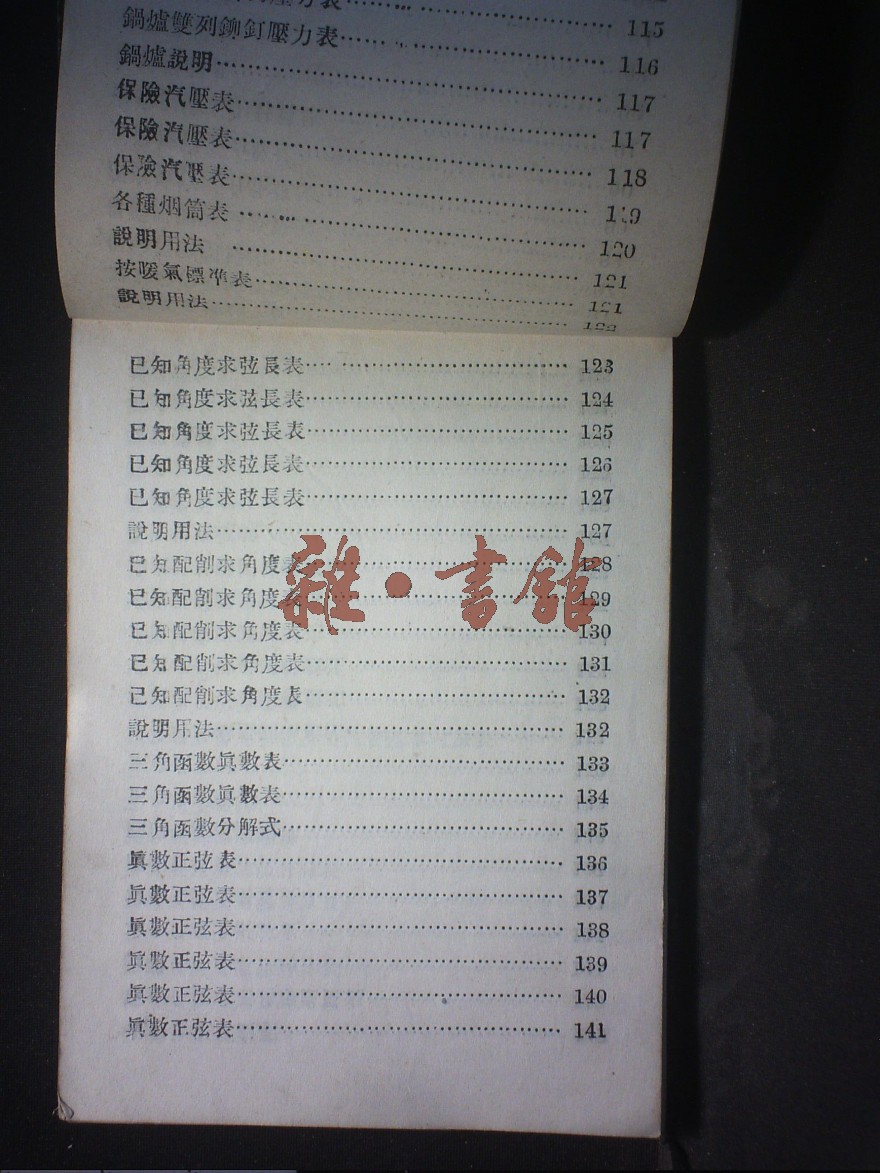 壓力表 115
鍋爐雙列鉚釘壓力表 116
鍋爐說明 117
保險汽壓表 117
保險汽壓表 118
保險汽壓表 119
各種烟筒表 120
說明用法 121
按暖氣標準表 121
說明用法 122
已知角度求弦長表 123
已知角度求弦長表 124
已知角度求弦長表 125
已知角度求弦長表 126
已知角度求弦長表 127
說明用法 127
已知配削求角度表 128
已知配削求角度表 129
已知配削求角度表 130
已知配削求角度表 131
已知配削求角度表 132
說明用法 132
三角函數眞數表 133
三角函數眞數表 134
三角函數分解式 135
眞數正弦表 136
眞數正弦表 137
眞數正弦表 138
眞數正弦表 139
眞數正弦表 140
眞數正弦表 141
雜·書館